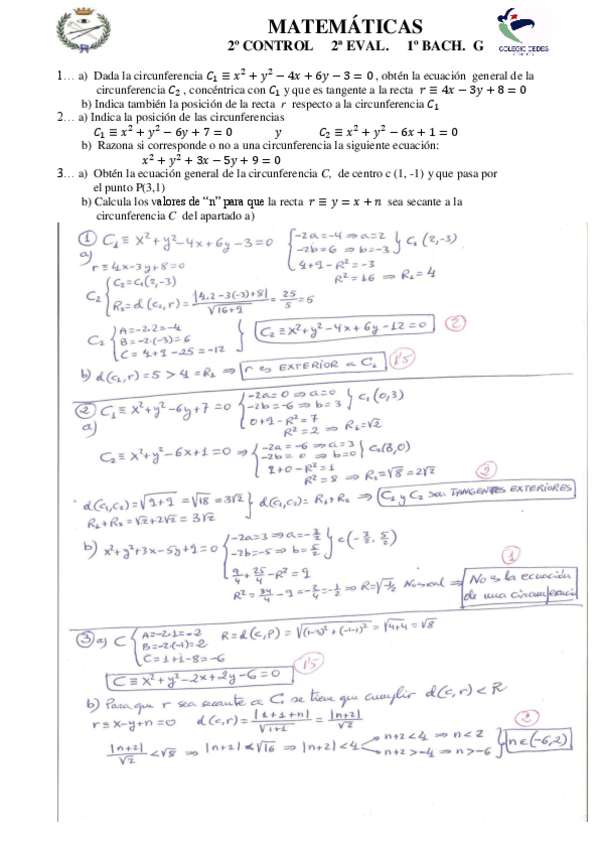 MATEMÁTICAS
2º CONTROL 2ª EVAL. 1º BACH. G
COLEGIO CEDES
1… a) Dada la circunferencia C₁ ≡ x² + y² − 4x + 6y − 3 = 0 , obtén la ecuación general de la
circunferencia C₂ , concéntrica con C₁ y que es tangente a la recta r ≡ 4x − 3y + 8 = 0
b) Indica también la posición de la recta r respecto a la circunferencia C₁
2… a) Indica la posición de las circunferencias
C₁ ≡ x² + y² − 6y + 7 = 0 y C₂ ≡ x² + y² − 6x + 1 = 0
b) Razona si corresponde o no a una circunferencia la siguiente ecuación:
x² + y² + 3x − 5y + 9 = 0
3… a) Obtén la ecuación general de la circunferencia C, de centro c (1, -1) y que pasa por
el punto P(3,1)
b) Calcula los valores de “n” para que la recta r ≡ y = x + n sea secante a la
circunferencia C del apartado a)
① C₁ ≡ x²+y²−4x+6y−3=0 { −2a=−4 ⇒ a=2 } C₁ (2,−3)
−2b=6 ⇒ b=−3
a) r ≡ 4x−3y+8=0 4+9−R²=−3
R²=16 ⇒ R₁=4
C₂ { C₂=C₁(2,−3)
R₂=d(C₂,r)= |4·2−3(−3)+8| / √16+9 = 25/5 = 5
C₂ { A=−2·2=−4
B=−2·(−3)=6
C=4+9−25=−12 } C₂ ≡ x²+y²−4x+6y−12=0 ②
b) d(C₁,r)=5 > 4=R₁ ⇒ r es EXTERIOR a C₁ 1'5
② C₁ ≡ x²+y²−6y+7=0 { −2a=0 ⇒ a=0 } C₁ (0,3)
−2b=−6 ⇒ b=3
a) 0+9−R²=7
R²=2 ⇒ R₁=√2
C₂ ≡ x²+y²−6x+1=0 ⇒ { −2a=−6 ⇒ a=3 } C₂(3,0)
−2b=0 ⇒ b=0
9+0−R²=1
R²=8 ⇒ R₂=√8=2√2 ②
d(C₁,C₂)=√9+9=√18=3√2 } d(C₁,C₂)=R₁+R₂ ⇒ C₁ y C₂ son TANGENTES EXTERIORES
R₁+R₂=√2+2√2=3√2
b) x²+y²+3x−5y+9=0 { −2a=3 ⇒ a=−3/2 } C(−3/2, 5/2)
−2b=−5 ⇒ b=5/2
9/4+25/4−R²=9 ①
R²=34/4−9=−2/4=−1/2 ⇒ R=√−1/2 No real ⇒ No es la ecuación
de una circunferencia
③ a) C { A=−2·1=−2
B=−2·(−1)=2
C=1+1−8=−6 R=d(C,P)=√(1−3)²+(−1−1)²=√4+4=√8
C ≡ x²+y²−2x+2y−6=0 1'5
b) Para que r sea secante a C, se tiene que cumplir d(c,r)<R
r ≡ x−y+n=0 d(c,r)= |1+1+n| / √1+1 = |n+2| / √2 ②
|n+2| / √2 < √8 ⇒ |n+2|<√16 ⇒ |n+2|<4 n+2<4 ⇒ n<2
n+2>−4 ⇒ n>−6 } n∈(−6,2)